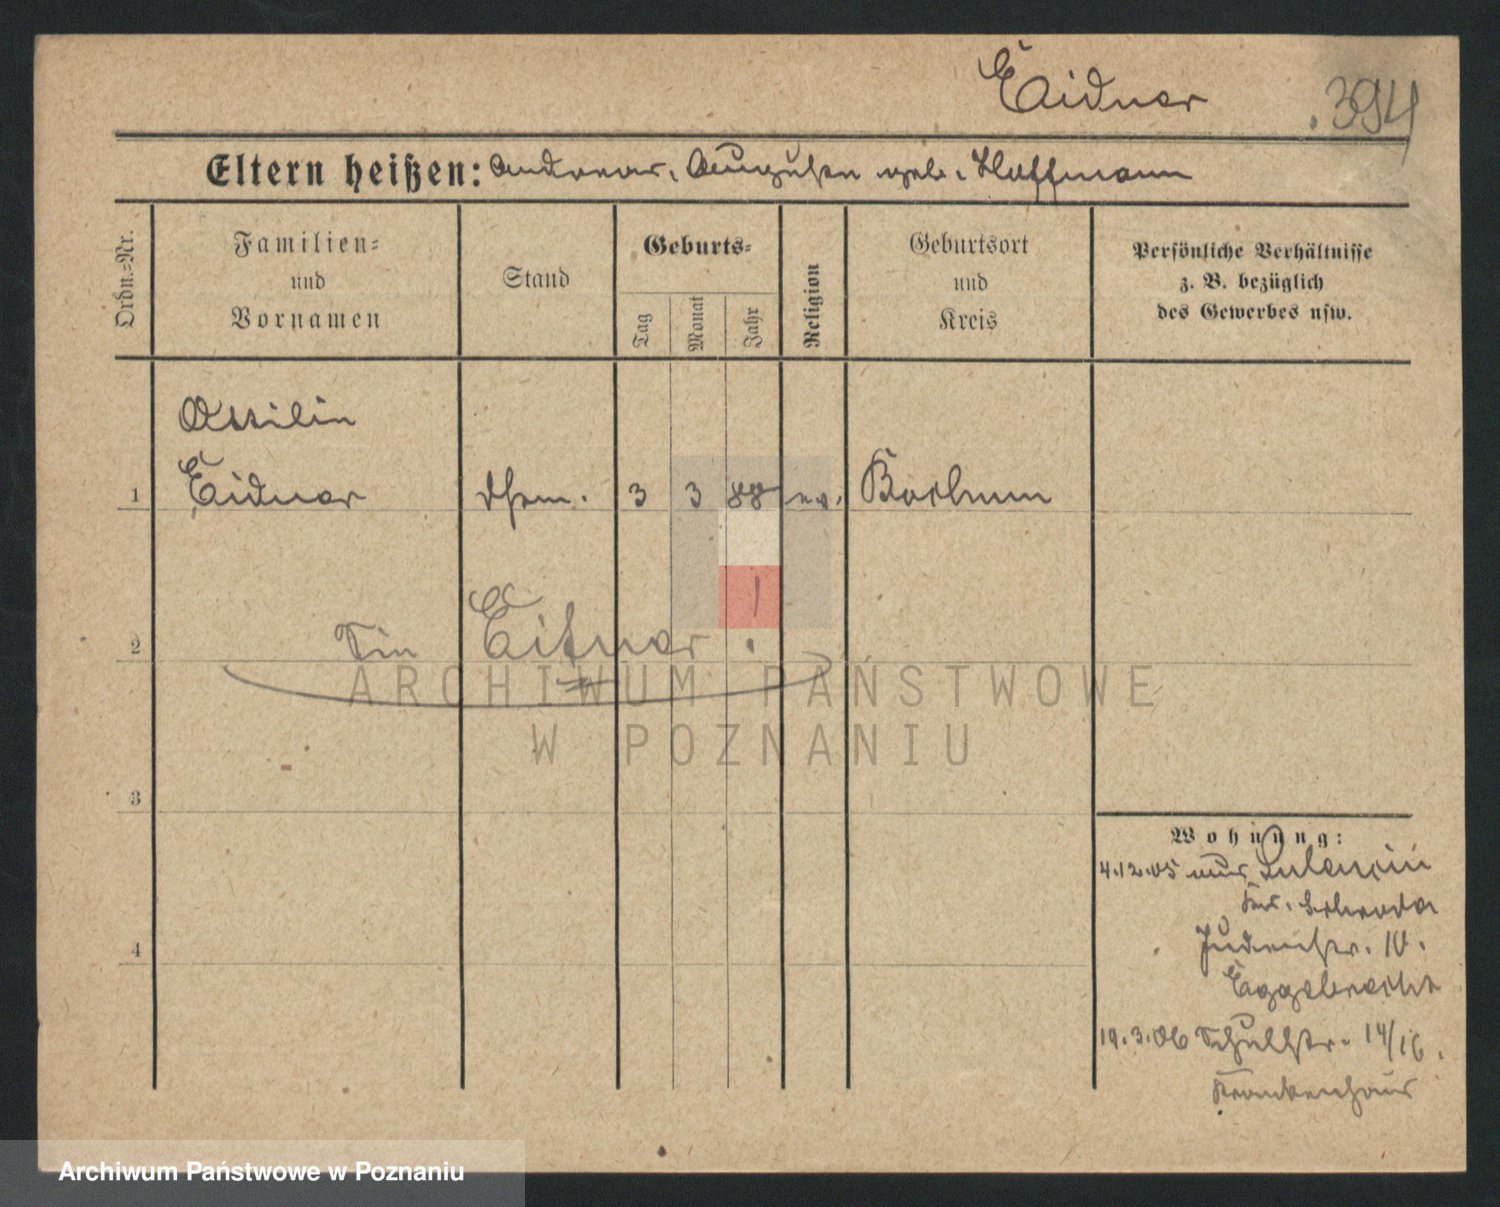 Eidner
394
Eltern heißen: Andreas, Auguste geb. Hoffmann
Ordn.=Nr.
Familien=
und
Vornamen
Stand
Geburts=
Tag
Monat
Jahr
Religion
Geburtsort
und
Kreis
Persönliche Verhältnisse
z. B. bezüglich
des Gewerbes usw.
Ottilie
1 Eidner 3 3 88 ev. Bochum
2 Eitner
3
4
Wohnung:
4.12.05
Kr. Schroda
Judenstr. 10.
Eggebrecht
19.3.06 Schulstr. 14/16.
Krankenhaus
ARCHIWUM PAŃSTWOWE
W POZNANIU
Archiwum Państwowe w Poznaniu